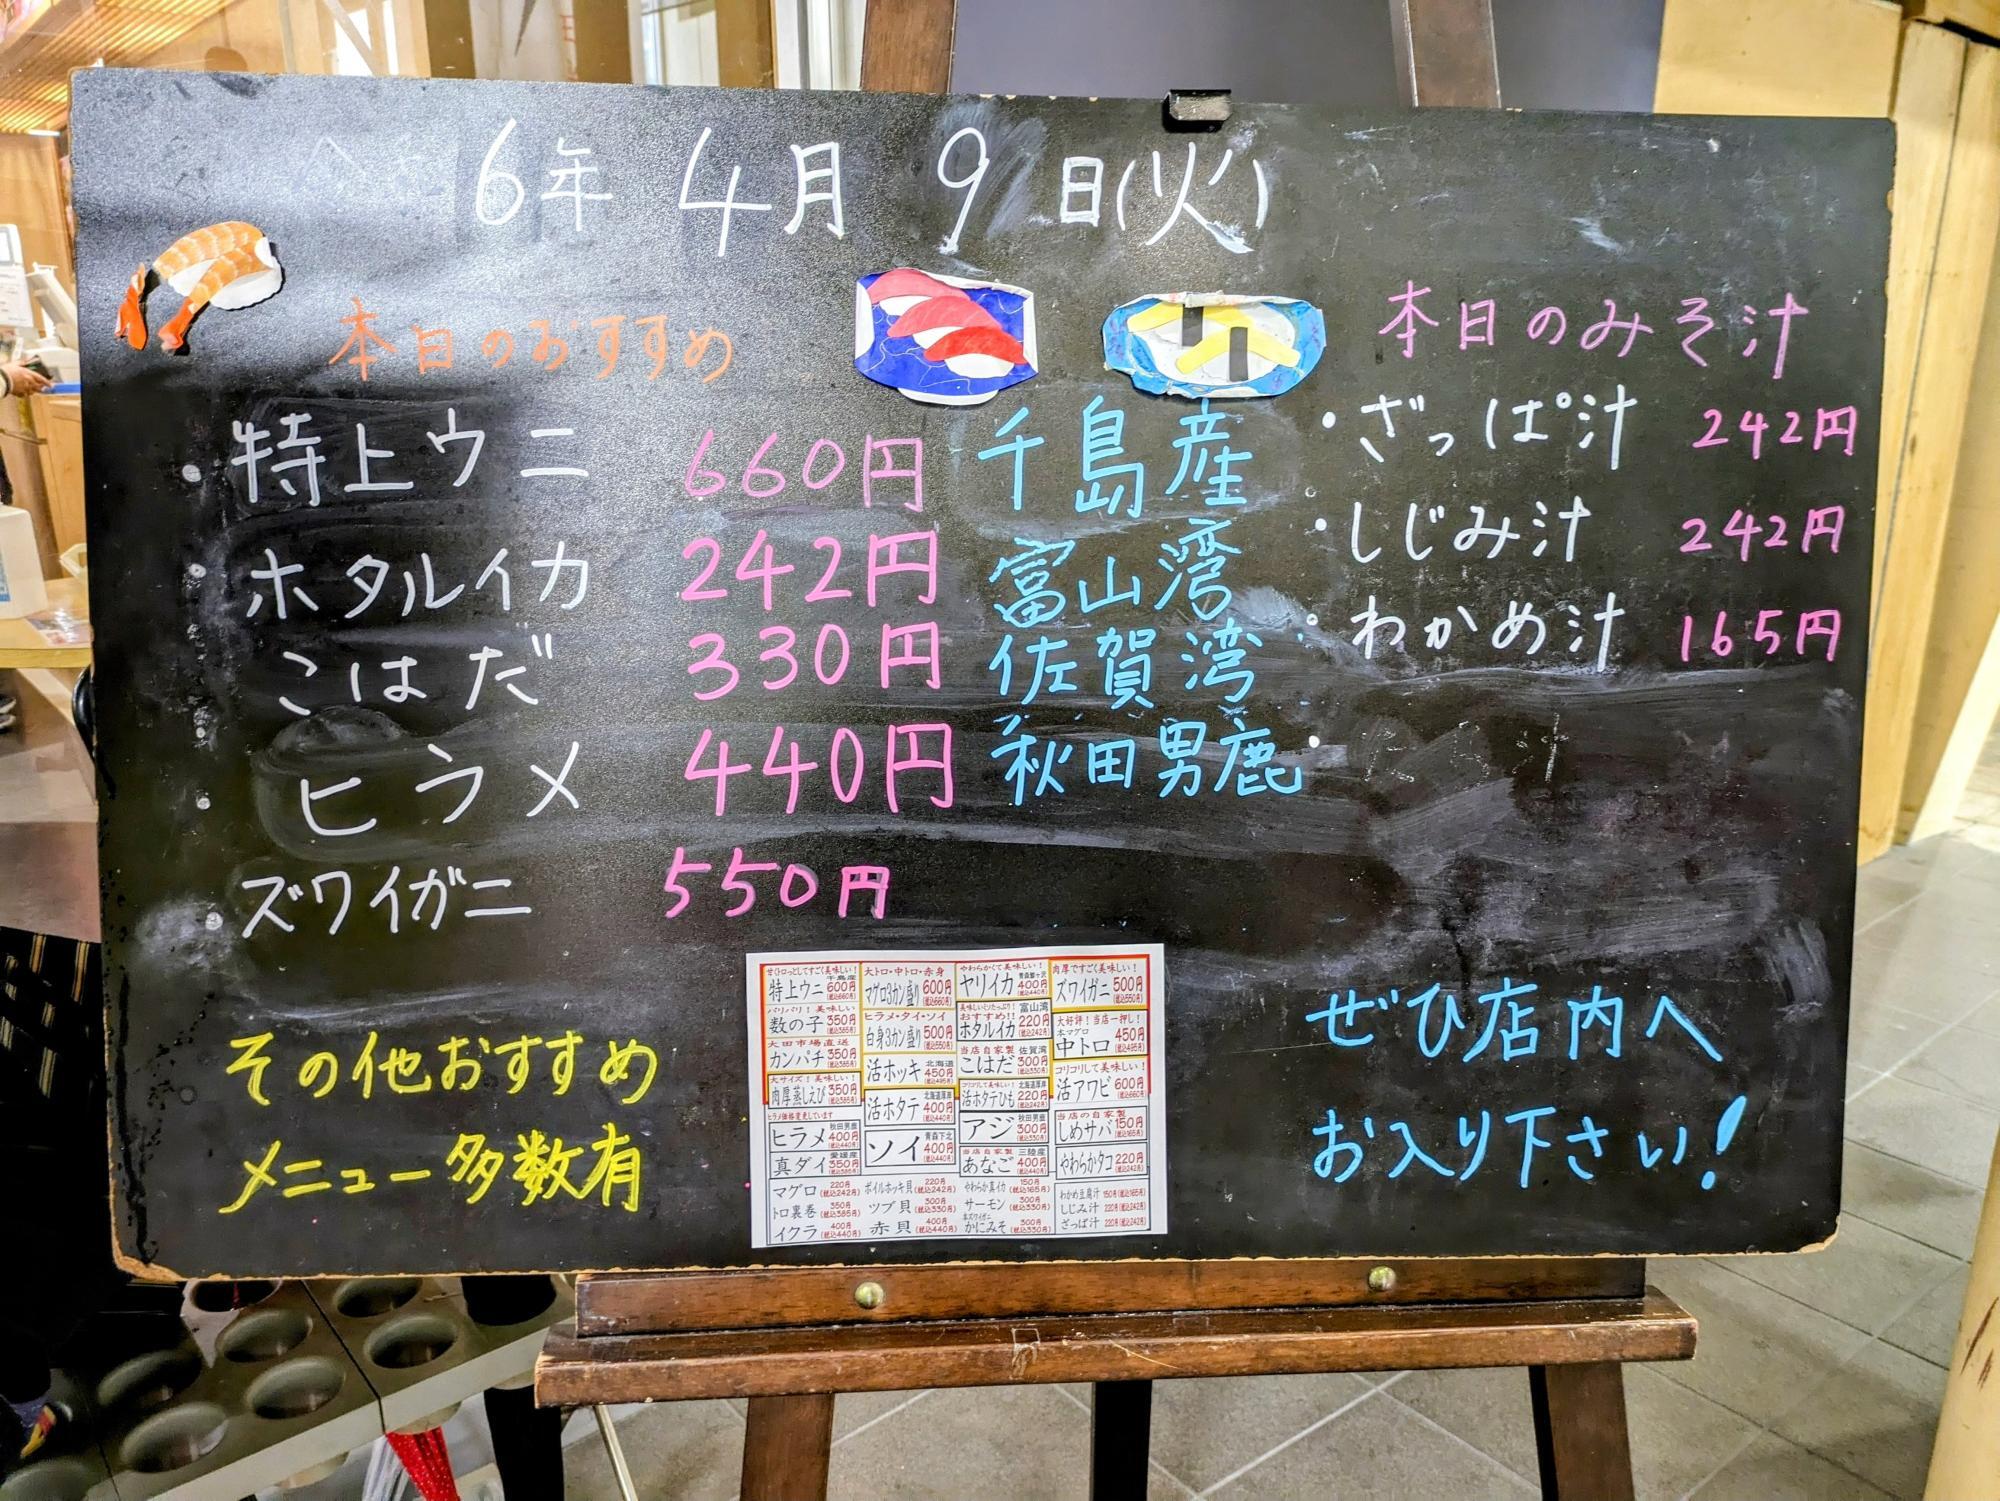 6年 4月 9日(火)
本日のおすすめ
・特上ウニ 660円 千島産
・ホタルイカ 242円 富山湾
・こはだ 330円 佐賀湾
・ヒラメ 440円 秋田男鹿
・ズワイガニ 550円
本日のみそ汁
・ざっぱ汁 242円
・しじみ汁 242円
・わかめ汁 165円
その他おすすめ
メニュー多数有
甘くトロっとしてすごく美味しい!
千島産
特上ウニ 600円 (税込660円)
パリパリ!美味しい
数の子 350円 (税込385円)
大田市場直送
カンパチ 350円 (税込385円)
大サイズ!美味しい!
肉厚蒸しえび 350円 (税込385円)
ヒラメ価格変更しています
秋田男鹿
ヒラメ 400円 (税込440円)
愛媛産
真ダイ 350円 (税込385円)
マグロ 220円 (税込242円)
トロ裏巻 350円 (税込385円)
イクラ 400円 (税込440円)
大トロ・中トロ・赤身
マグロ3カン盛り 600円 (税込660円)
ヒラメ・タイ・ソイ
白身3カン盛り 500円 (税込550円)
北海道
活ホッキ 450円 (税込495円)
北海道厚岸
活ホタテ 400円 (税込440円)
青森下北
ソイ 400円 (税込440円)
ボイルホッキ貝 220円 (税込242円)
ツブ貝 300円 (税込330円)
赤貝 400円 (税込440円)
やわらかくて美味しい!
ヤリイカ 400円 (税込440円)
おすすめ!! 富山湾
ホタルイカ 220円 (税込242円)
当店自家製 佐賀湾
こはだ 300円 (税込330円)
コリコリして美味しい! 北海道厚岸
活ホタテひも 220円 (税込242円)
秋田男鹿
アジ 300円 (税込330円)
当店自家製 三陸産
あなご 400円 (税込440円)
やわらか真イカ 150円 (税込165円)
サーモン 300円 (税込330円)
本ズワイガニ
かにみそ 300円 (税込330円)
肉厚ですごく美味しい!
ズワイガニ 500円 (税込550円)
大好評!当店一押し!
本マグロ
中トロ 450円 (税込495円)
コリコリして美味しい!
活アワビ 600円 (税込660円)
当店の自家製
しめサバ 150円 (税込165円)
やわらかタコ 220円 (税込242円)
わかめ豆腐汁 150円(税込165円)
しじみ汁 220円(税込242円)
ざっぱ汁 220円(税込242円)
ぜひ店内へ
お入り下さい!